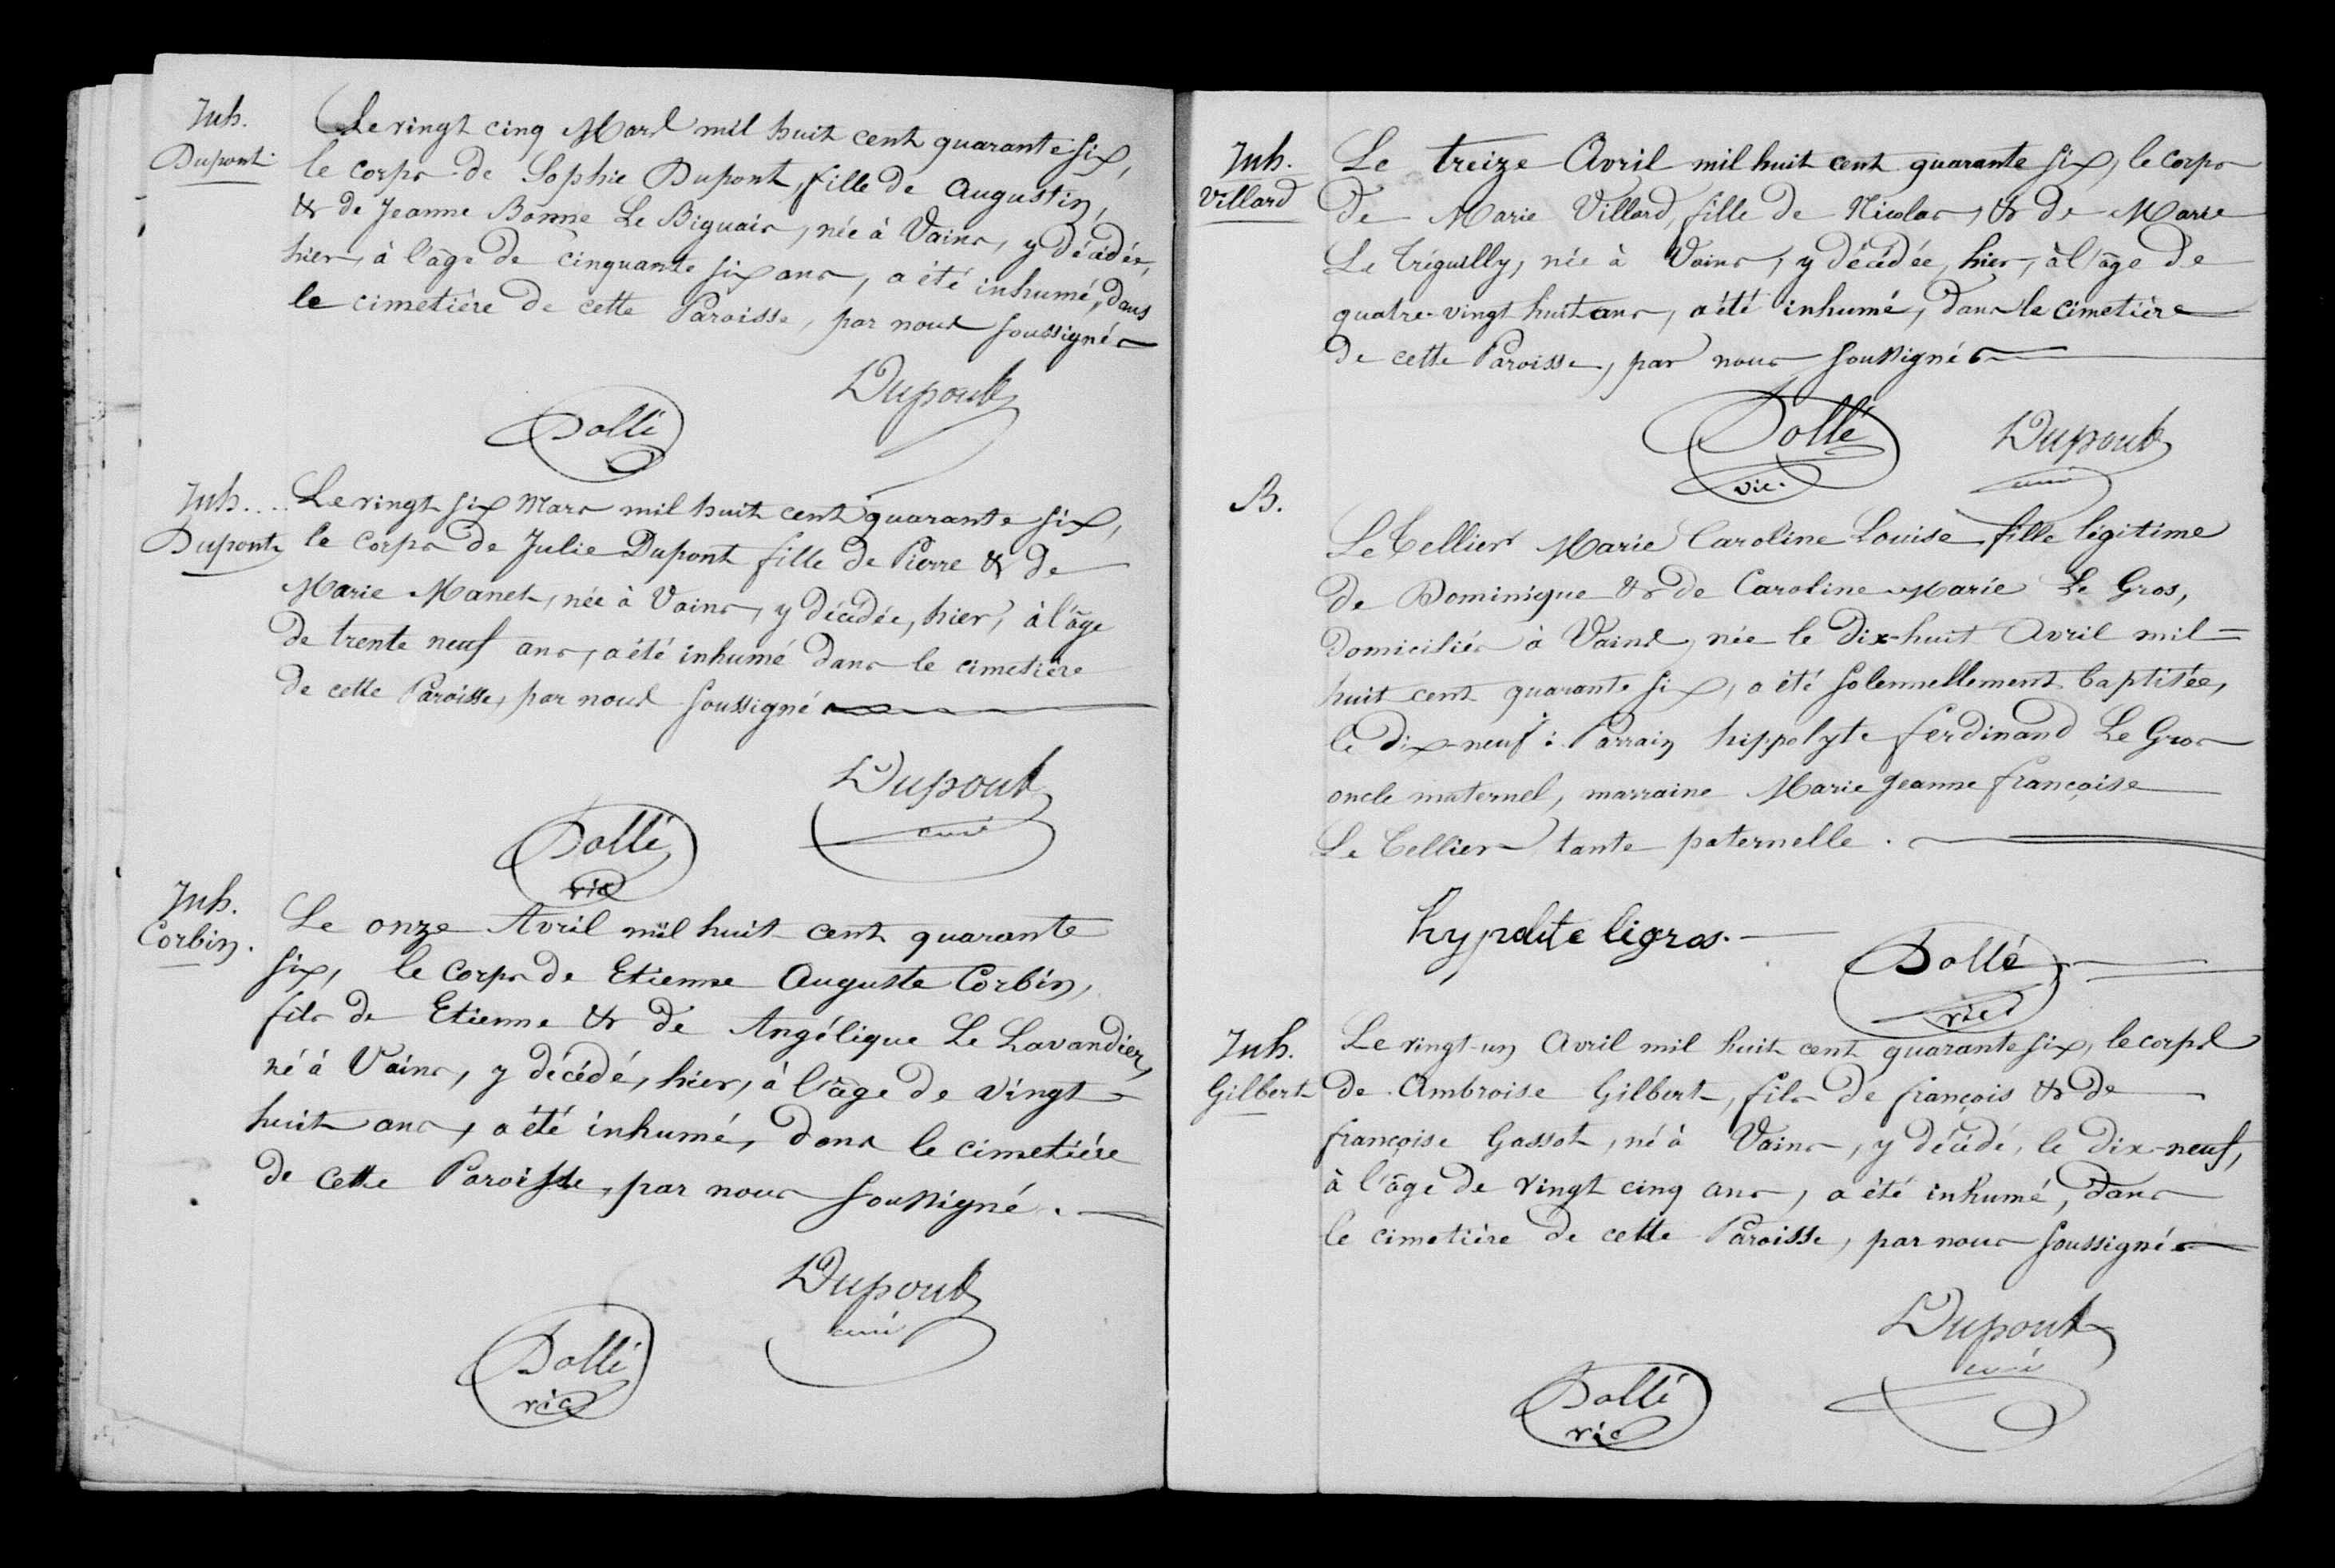 Inh.
Dupont
Le vingt cinq Mars mil huit cent quarante six,
le corps de Sophie Dupont, fille de Augustin,
& de Jeanne Bonne Le Biguais, née à Vains, y décédée,
hier, à l'âge de cinquante six ans, a été inhumé, dans
le cimetière de cette Paroisse, par nous soussignés
Dupont
Dollé
Inh.
Dupont
Le vingt six Mars mil huit cent quarante six,
le corps de Julie Dupont fille de Pierre & de
Marie Manet, née à Vains, y décédée, hier, à l'âge
de trente neuf ans, a été inhumé dans le cimetière
de cette Paroisse, par nous soussigné
Dupont
curé
Dollé
vic
Inh.
Corbin.
Le onze Avril mil huit cent quarante
six, le corps de Etienne Auguste Corbin,
fils de Etienne & de Angélique Le Lavandier,
né à Vains, y décédé, hier, à l'âge de vingt
huit ans, a été inhumé, dans le cimetière
de cette Paroisse, par nous soussigné.
Dupont
curé
Dollé
vic
Inh.
Villard
Le treize Avril mil huit cent quarante six, le corps
de Marie Villard, fille de Nicolas, & de Marie
Le Tréguilly, née à Vains, y décédée, hier, à l'âge de
quatre-vingt huit ans, a été inhumé, dans le cimetière
de cette Paroisse, par nous soussignés
Dollé
vic.
Dupont
curé
B.
Le Tellier Marie Caroline Louise fille légitime
de Dominique & de Caroline Marie Le Gros,
domiciliés à Vains, née le dix-huit Avril mil
huit cent quarante six, a été solennellement baptisée,
le dix-neuf : Parrain hippolyte ferdinand Le Gros
oncle maternel, marraine Marie Jeanne françoise
Le Tellier tante paternelle.
hypolite ligros.
Dollé
vic
Inh.
Gilbert
Le vingt-un Avril mil huit cent quarante six, le corps
de Ambroise Gilbert, fils de françois & de
françoise Gassot, né à Vains, y décédé, le dix-neuf,
à l'âge de vingt cinq ans, a été inhumé, dans
le cimetière de cette Paroisse, par nous soussignés
Dupont
curé
Dollé
vic